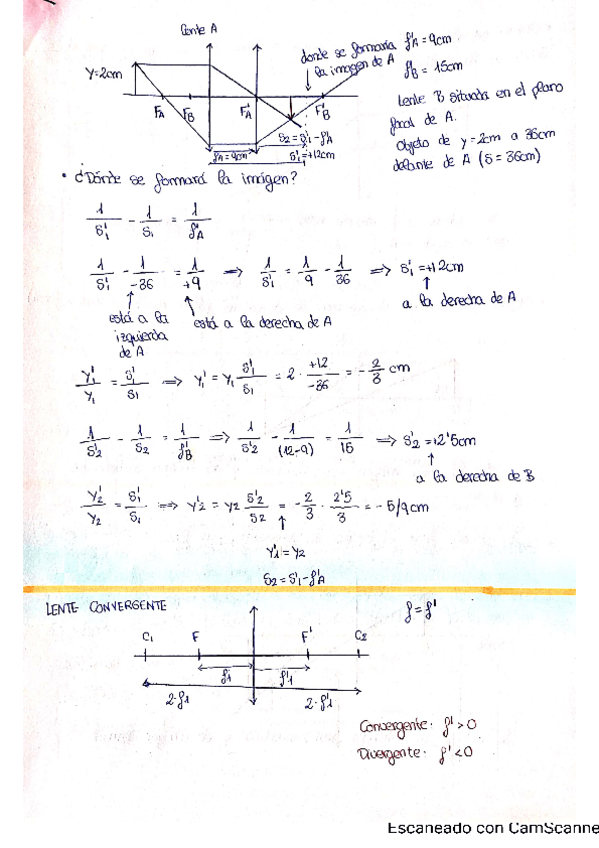 Lente A
Y=2cm
donde se formaría
la imagen de A
f'A = 9cm
f'B = 15cm
Lente B situada en el plano
focal de A.
Objeto de y=2cm a 36cm
delante de A (s = 36cm)
FA FB F'A F'B
S2 = S'1 - f'A
f'A = 9cm
S'1 = +12cm
• ¿Dónde se formará la imágen?
1/S'1 - 1/S1 = 1/f'A
1/S'1 - 1/-36 = 1/+9 ⇒ 1/S'1 = 1/9 - 1/36 ⇒ S'1 = +12cm
está a la izquierda de A
está a la derecha de A
a la derecha de A
Y'1/Y1 = S'1/S1 ⇒ Y'1 = Y1 S'1/S1 = 2 · +12/-36 = -2/3 cm
1/S'2 - 1/S2 = 1/f'B ⇒ 1/S'2 - 1/(12-9) = 1/15 ⇒ S'2 = +2'5cm
a la derecha de B
Y'2/Y2 = S'1/S1 ⇒ Y'2 = Y2 S'2/S2 = -2/3 · 2'5/3 = -5/9cm
Y'1 = Y2
S2 = S'1 - f'A
LENTE CONVERGENTE
f = f'
C1 F F' C2
f1 f'1
2·f1 2·f'1
Convergente· f' > 0
Divergente· f' < 0
Escaneado con CamScanne